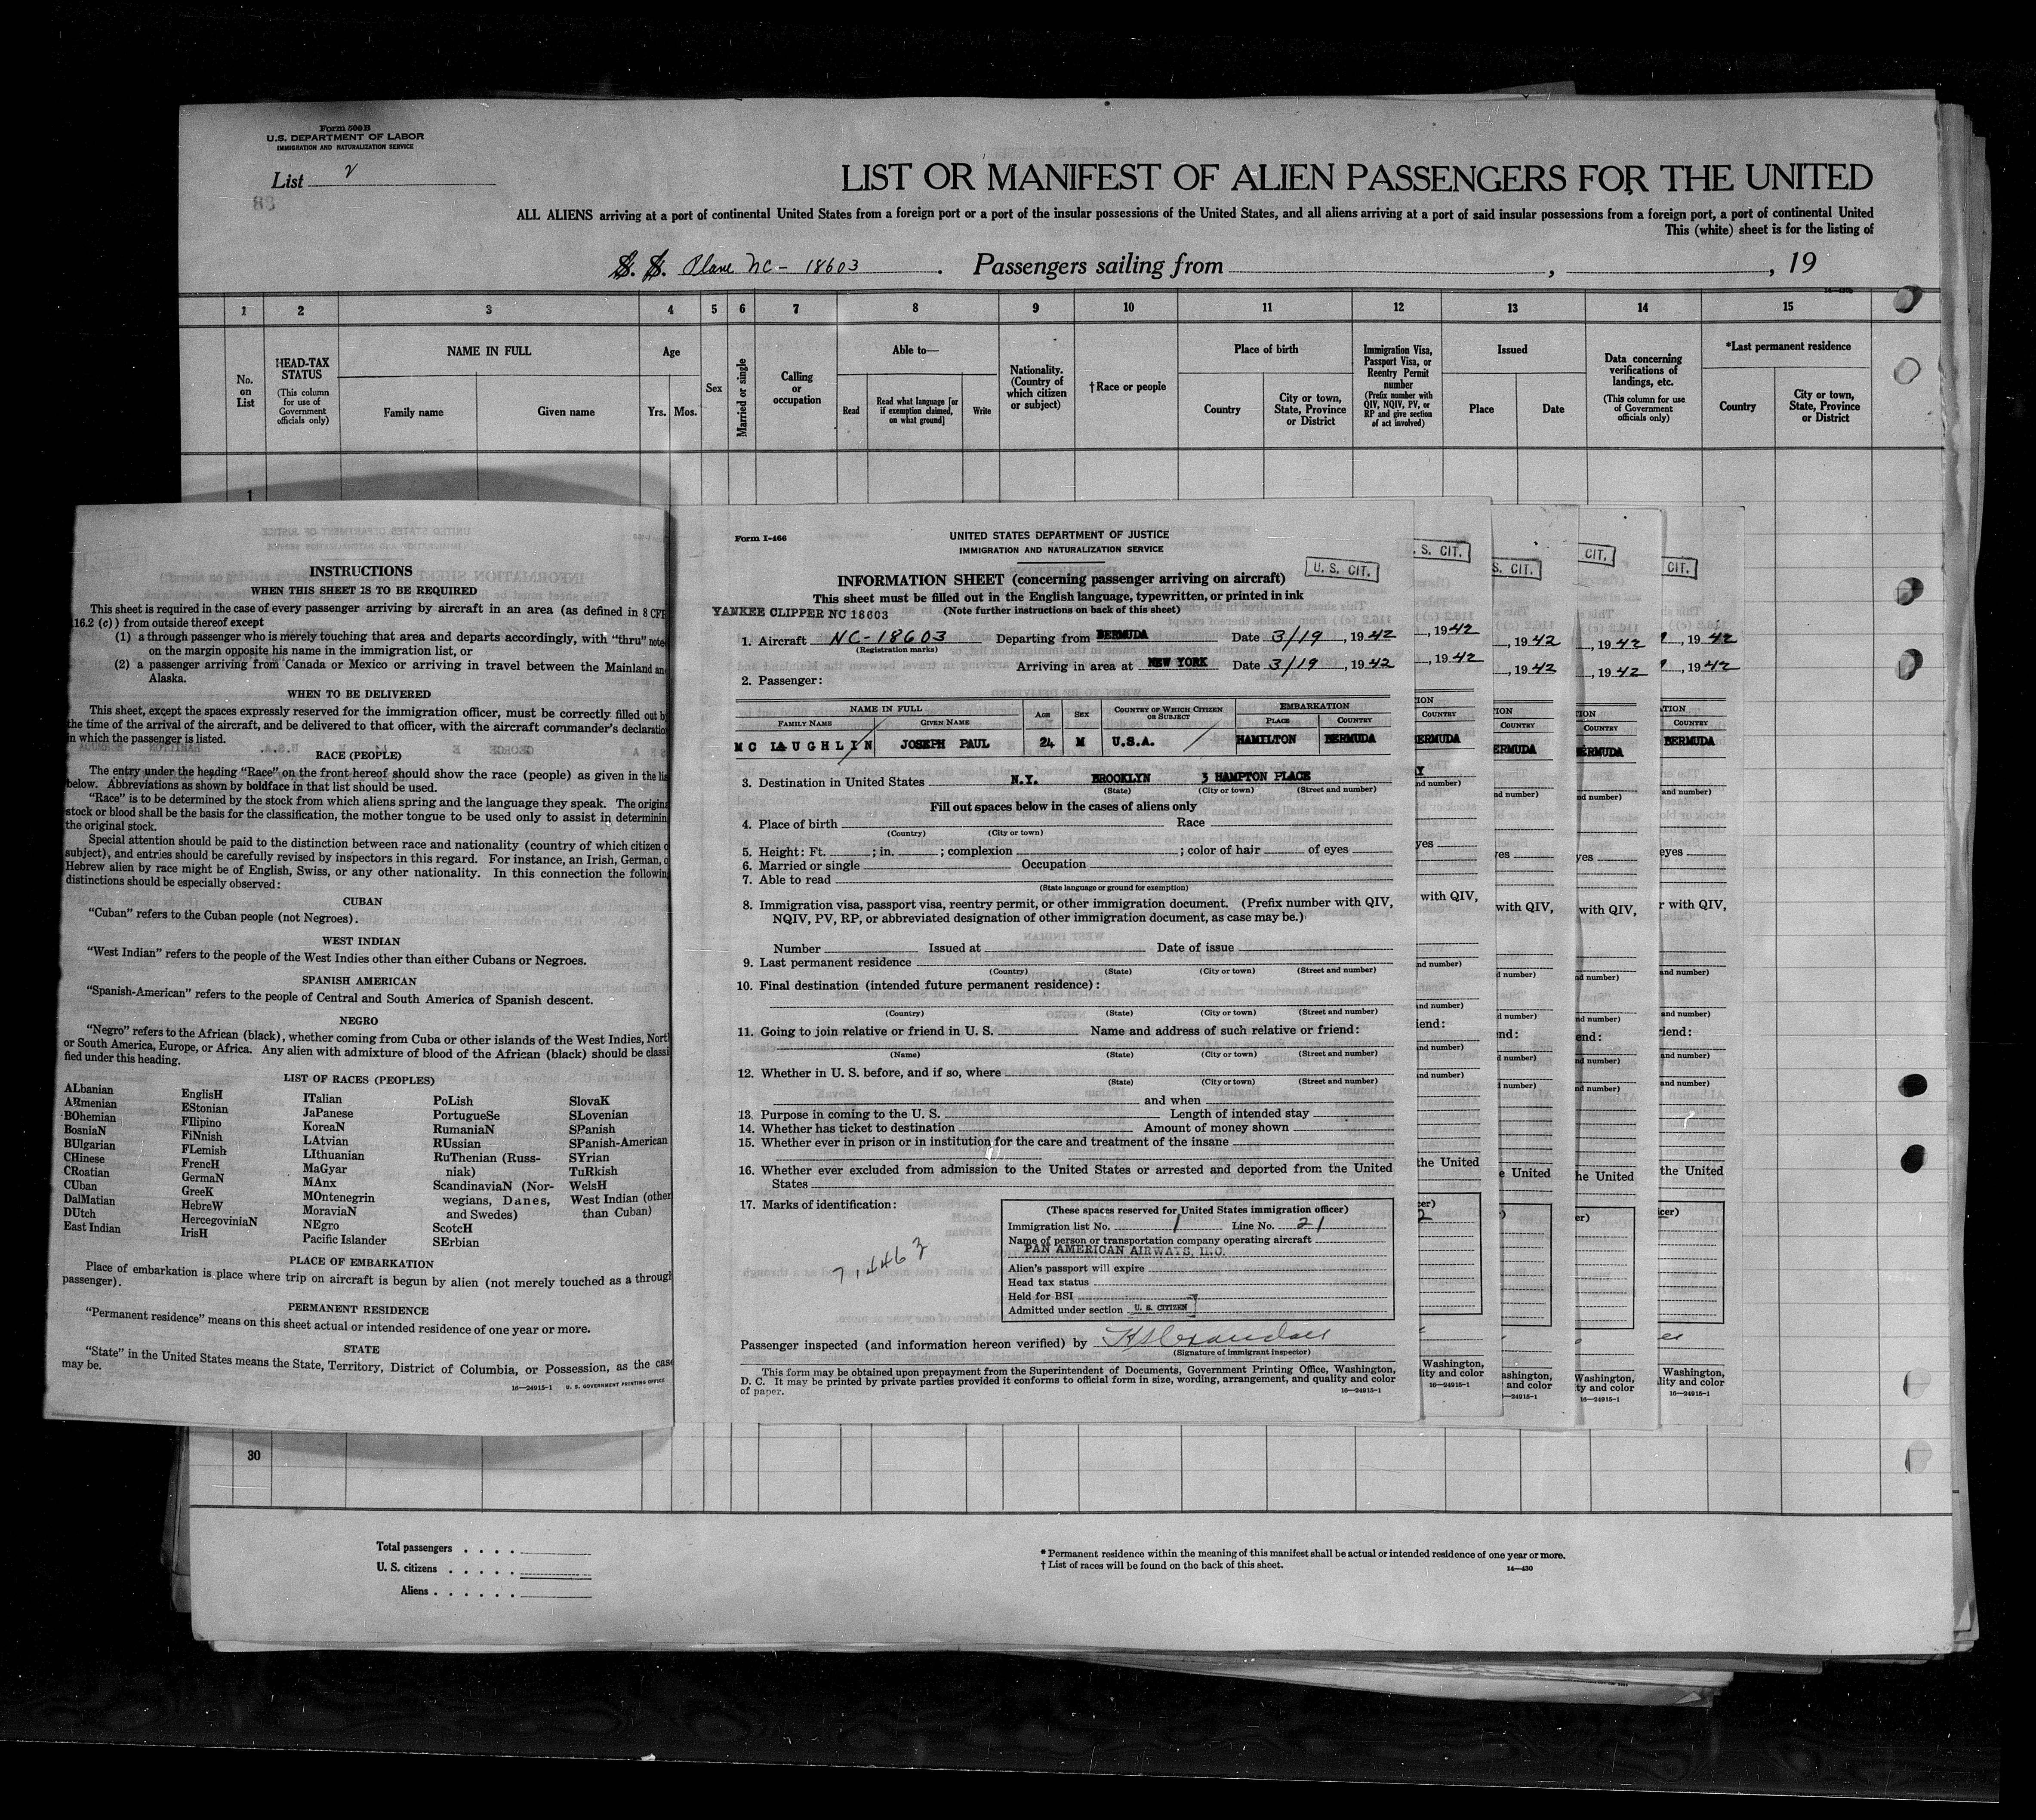 Form 500B
U.S. DEPARTMENT OF LABOR
IMMIGRATION AND NATURALIZATION SERVICE
List 2
88
LIST OR MANIFEST OF ALIEN PASSENGERS FOR THE UNITED
ALL ALIENS arriving at a port of continental United States from a foreign port or a port of the insular possessions of the United States, and all aliens arriving at a port of said insular possessions from a foreign port, a port of continental United
This (white) sheet is for the listing of
S. S. Plane NC - 18603 . Passengers sailing from , , 19
1 2 3 4 5 6 7 8 9 10 11 12 13 14 15
No. on List
HEAD-TAX STATUS (This column for use of Government officials only)
NAME IN FULL
Family name Given name
Age
Yrs. Mos.
Sex
Married or single
Calling or occupation
Able to—
Read
Read what language [or if exemption claimed, on what ground]
Write
Nationality. (Country of which citizen or subject)
†Race or people
Place of birth
Country
City or town, State, Province or District
Immigration Visa, Passport Visa, or Reentry Permit number (Prefix number with QIV, NQIV, PV, or RP and give section of act involved)
Issued
Place Date
Data concerning verifications of landings, etc. (This column for use of Government officials only)
*Last permanent residence
Country
City or town, State, Province or District
1
INSTRUCTIONS
WHEN THIS SHEET IS TO BE REQUIRED
This sheet is required in the case of every passenger arriving by aircraft in an area (as defined in 8 CFR
116.2 (c)) from outside thereof except
(1) a through passenger who is merely touching that area and departs accordingly, with "thru" noted
on the margin opposite his name in the immigration list, or
(2) a passenger arriving from Canada or Mexico or arriving in travel between the Mainland and
Alaska.
WHEN TO BE DELIVERED
This sheet, except the spaces expressly reserved for the immigration officer, must be correctly filled out by
the time of the arrival of the aircraft, and be delivered to that officer, with the aircraft commander's declaration
in which the passenger is listed.
RACE (PEOPLE)
The entry under the heading "Race" on the front hereof should show the race (people) as given in the list
below. Abbreviations as shown by boldface in that list should be used.
"Race" is to be determined by the stock from which aliens spring and the language they speak. The original
stock or blood shall be the basis for the classification, the mother tongue to be used only to assist in determining
the original stock.
Special attention should be paid to the distinction between race and nationality (country of which citizen or
subject), and entries should be carefully revised by inspectors in this regard. For instance, an Irish, German, or
Hebrew alien by race might be of English, Swiss, or any other nationality. In this connection the following
distinctions should be especially observed:
CUBAN
"Cuban" refers to the Cuban people (not Negroes).
WEST INDIAN
"West Indian" refers to the people of the West Indies other than either Cubans or Negroes.
SPANISH AMERICAN
"Spanish-American" refers to the people of Central and South America of Spanish descent.
NEGRO
"Negro" refers to the African (black), whether coming from Cuba or other islands of the West Indies, North
or South America, Europe, or Africa. Any alien with admixture of blood of the African (black) should be classi
fied under this heading.
LIST OF RACES (PEOPLES)
ALbanian
ARmenian
BOhemian
BosniaN
BUlgarian
CHinese
CRoatian
CUban
DalMatian
DUtch
East Indian
EnglisH
EStonian
FIlipino
FiNnish
FLemish
FrencH
GermaN
GreeK
HebreW
HercegoviniaN
IrisH
ITalian
JaPanese
KoreaN
LAtvian
LIthuanian
MaGyar
MAnx
MOntenegrin
MoraviaN
NEgro
Pacific Islander
PoLish
PortugueSe
RumaniaN
RUssian
RuThenian (Russ-
niak)
ScandinaviaN (Nor-
wegians, Danes,
and Swedes)
ScotcH
SErbian
SlovaK
SLovenian
SPanish
SPanish-American
SYrian
TuRkish
WelsH
West Indian (other
than Cuban)
PLACE OF EMBARKATION
Place of embarkation is place where trip on aircraft is begun by alien (not merely touched as a through
passenger).
PERMANENT RESIDENCE
"Permanent residence" means on this sheet actual or intended residence of one year or more.
STATE
"State" in the United States means the State, Territory, District of Columbia, or Possession, as the case
may be.
16—24915-1 U. S. GOVERNMENT PRINTING OFFICE
Form I-466
UNITED STATES DEPARTMENT OF JUSTICE
IMMIGRATION AND NATURALIZATION SERVICE
U. S. CIT.
INFORMATION SHEET (concerning passenger arriving on aircraft)
This sheet must be filled out in the English language, typewritten, or printed in ink
YANKEE CLIPPER NC 18603 (Note further instructions on back of this sheet)
1. Aircraft NC-18603 Departing from BERMUDA Date 3/19, 1942
(Registration marks)
Arriving in area at NEW YORK Date 3/19, 1942
2. Passenger:
NAME IN FULL
FAMILY NAME GIVEN NAME
AGE SEX COUNTRY OF WHICH CITIZEN OR SUBJECT
EMBARKATION
PLACE COUNTRY
MC LAUGHLIN JOSEPH PAUL 24 M U.S.A. HAMILTON BERMUDA
3. Destination in United States N.Y. BROOKLYN 3 HAMPTON PLACE
(State) (City or town) (Street and number)
Fill out spaces below in the cases of aliens only
4. Place of birth Race
(Country) (City or town)
5. Height: Ft. ; in. ; complexion ; color of hair of eyes
6. Married or single Occupation
7. Able to read
(State language or ground for exemption)
8. Immigration visa, passport visa, reentry permit, or other immigration document. (Prefix number with QIV,
NQIV, PV, RP, or abbreviated designation of other immigration document, as case may be.)
Number Issued at Date of issue
9. Last permanent residence
(Country) (State) (City or town) (Street and number)
10. Final destination (intended future permanent residence):
(Country) (State) (City or town) (Street and number)
11. Going to join relative or friend in U. S. Name and address of such relative or friend:
(Name) (State) (City or town) (Street and number)
12. Whether in U. S. before, and if so, where
(State) (City or town) (Street and number)
and when
13. Purpose in coming to the U. S. Length of intended stay
14. Whether has ticket to destination Amount of money shown
15. Whether ever in prison or in institution for the care and treatment of the insane
16. Whether ever excluded from admission to the United States or arrested and deported from the United
States
17. Marks of identification:
(These spaces reserved for United States immigration officer)
Immigration list No. 1 Line No. 21
Name of person or transportation company operating aircraft
PAN AMERICAN AIRWAYS, INC.
Alien's passport will expire
Head tax status
Held for BSI
Admitted under section U. S. CITIZEN
Passenger inspected (and information hereon verified) by
(Signature of immigrant inspector)
This form may be obtained upon prepayment from the Superintendent of Documents, Government Printing Office, Washington,
D. C. It may be printed by private parties provided it conforms to official form in size, wording, arrangement, and quality and color
of paper. 16—24915-1
30
Total passengers . . . .
U. S. citizens . . . . .
Aliens . . . . . .
* Permanent residence within the meaning of this manifest shall be actual or intended residence of one year or more.
† List of races will be found on the back of this sheet.
14—430